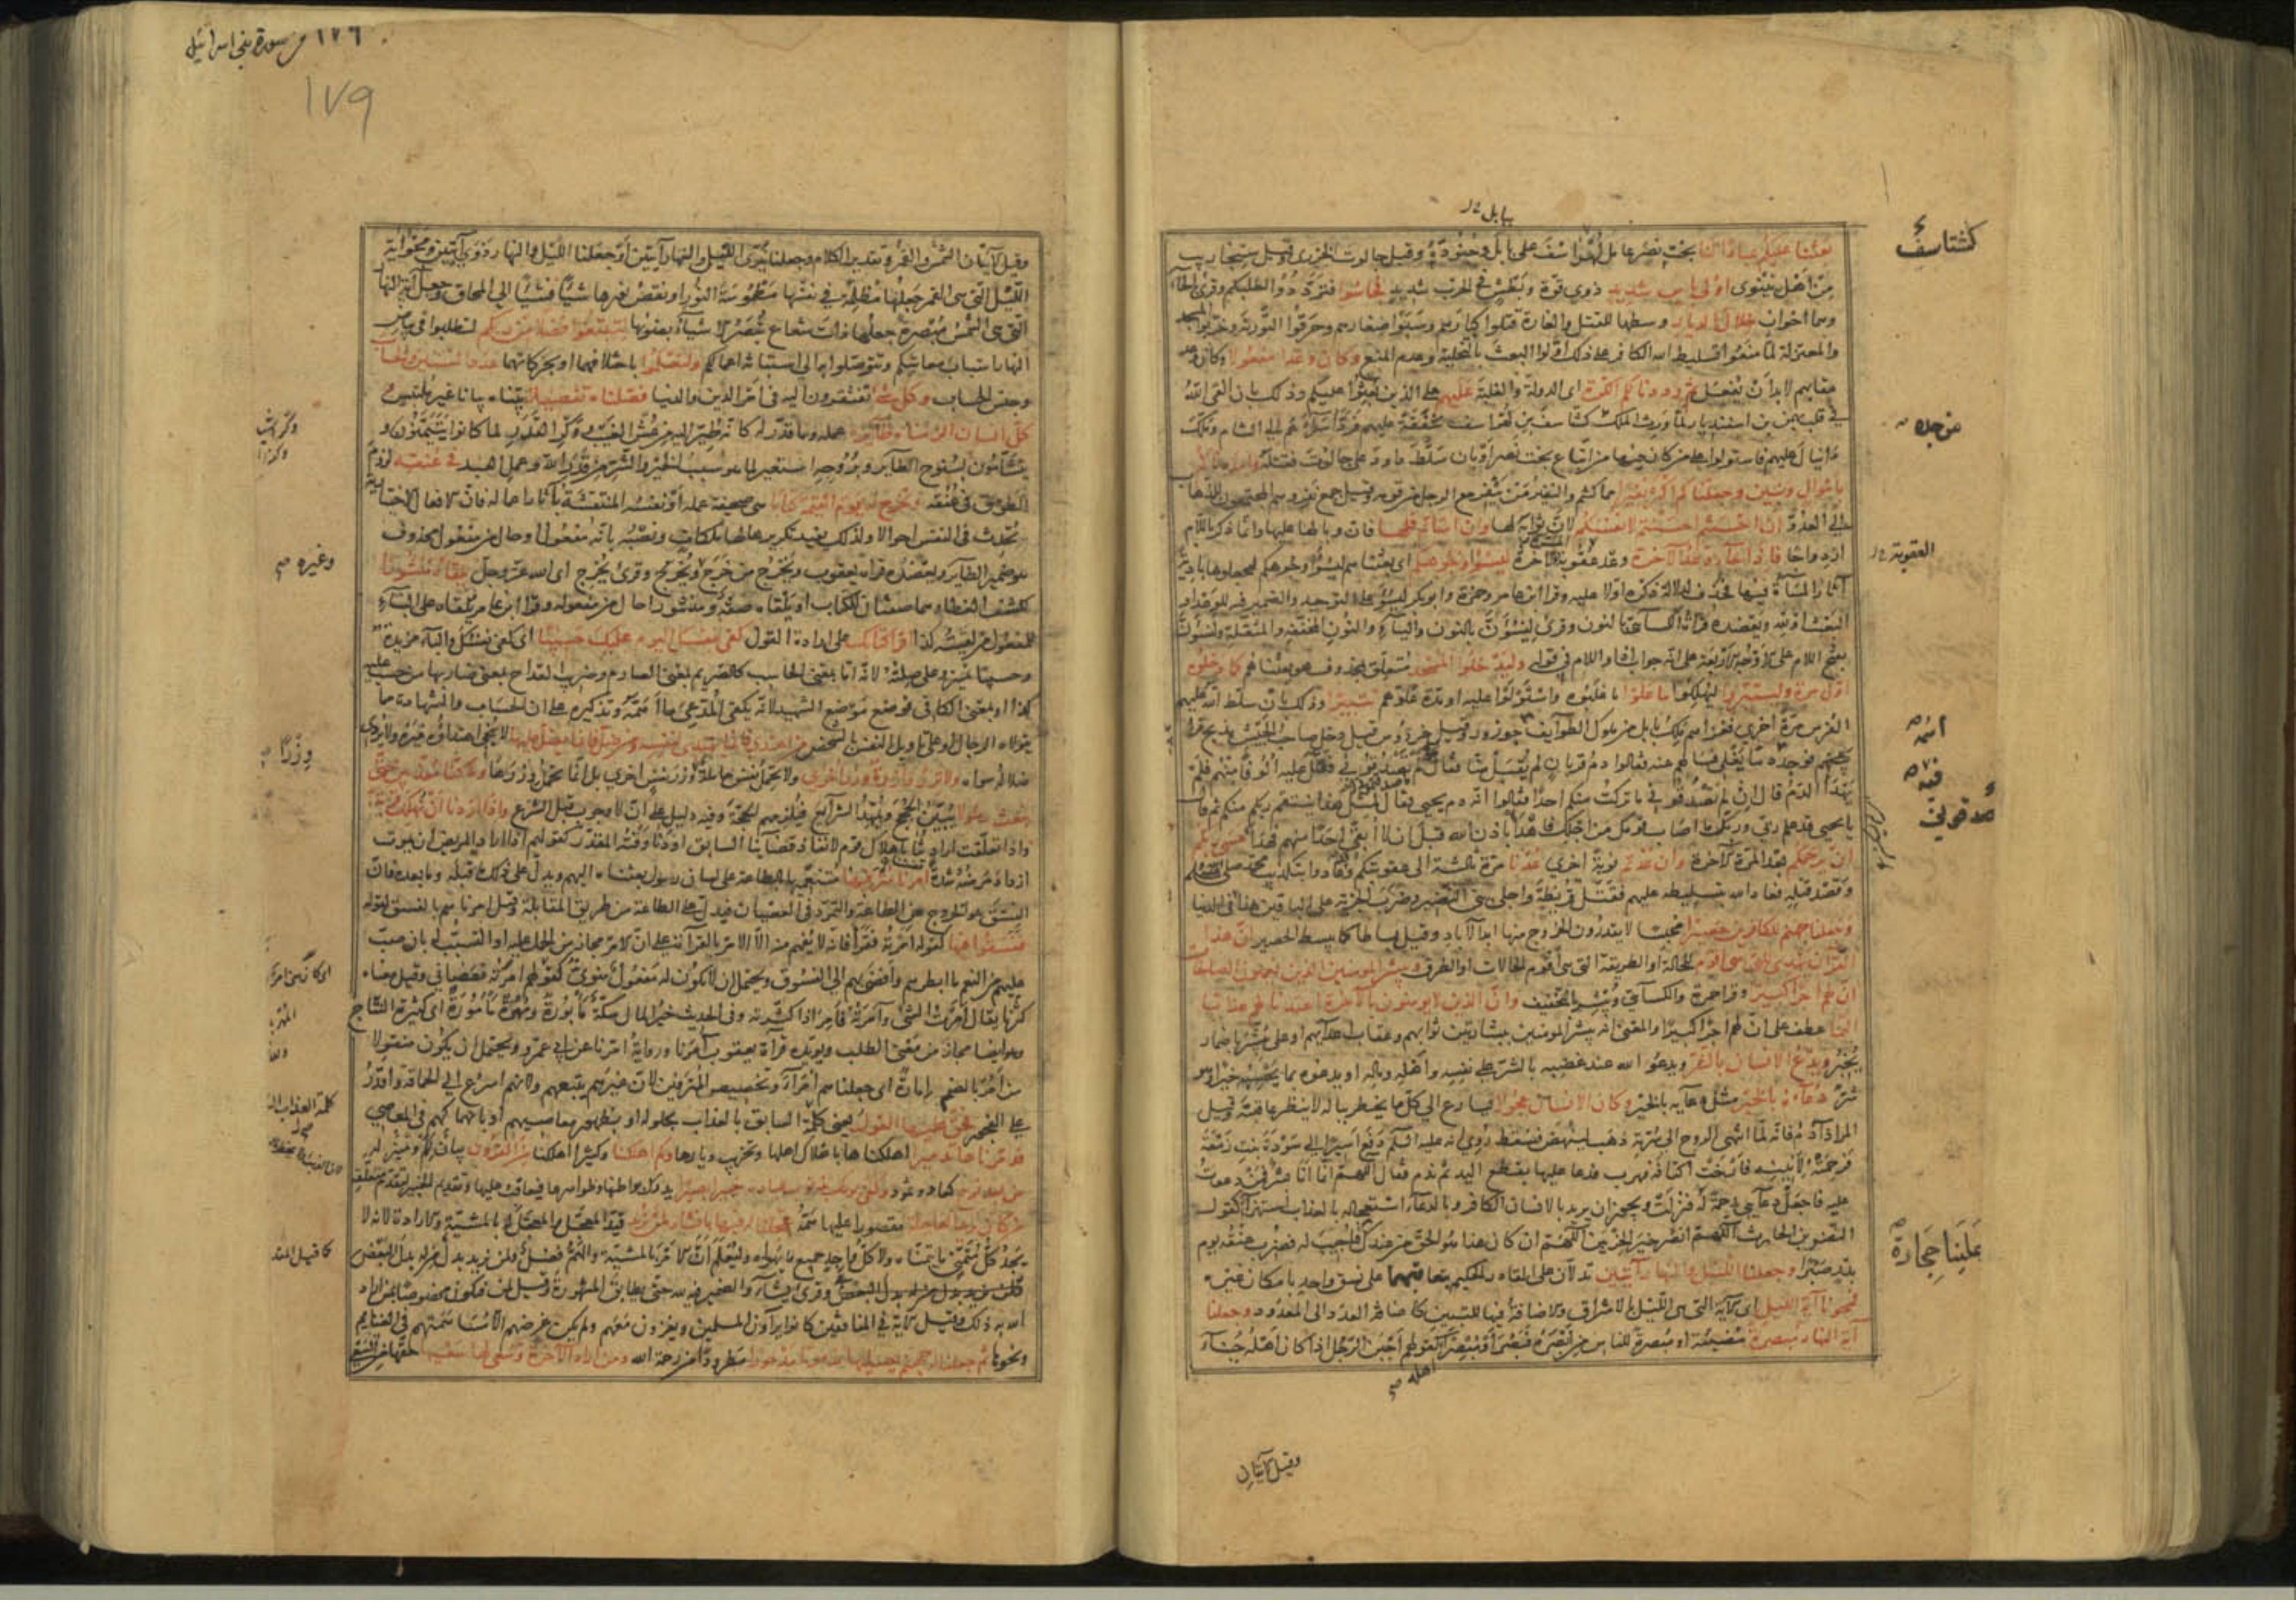 بابل
بعثنا عليكم عبادا لنا بخت نصر عامل لهراسف على بابل وجنوده وقيل جالوت الخزري وقيل سنجاريب
من اهل نينوى اولى باس شديد ذوى قوة وبطش في الحرب شديد فجاسوا فترددوا لطلبكم وقرئ بالحاء
وهما اخوان خلال الديار وسطها للقتل والغارة قتلوا كبارهم وسبوا صغارهم وحرقوا التورية وخربوا المسجد
والمعتزلة لما منعوا تسليط الله الكافر على ذلك اولوا البعث بالتخلية وعدم المنع وكان وعدا مفعولا وكان وعد
عقابهم لابد ان يفعل ثم رددنا لكم الكرة اى الدولة والغلبة عليهم على الذين بعثوا عليكم وذلك بان القى الله
في قلب بهمن بن اسفنديار لما ورث الملك كشتاسف بن لهراسف شفقة عليهم فرد اسراهم الى الشام وملك
دانيال عليهم فاستولوا على من كان فيها من اتباع بخت نصر او بان سلط داود على جالوت فقتله وامددناكم
باموال وبنين وجعلناكم اكثر نفيرا مما كنتم والنفير من ينفر مع الرجل من قومه وقيل جمع نفر وهم المجتمعون للذهاب
الى العدو ان احسنتم احسنتم لانفسكم لان ثوابه لها وان اساتم فلها فان وبالها عليها وانما ذكر باللام
ازدواجا فاذا جاء وعد الآخرة وعد عقوبة الآخرة ليسوؤا وجوهكم اى بعثناهم ليسوؤا وجوهكم ليجعلوها بادية
آثار المساة فيها فحذف لدلالة ذكره اولا عليه وقرا ابن عامر وحمزة وابو بكر ليسوء على التوحيد والضمير فيه للوعد او
للبعث او لله ويعضده قراة الكسائي بالنون وقرئ لنسوءن بالنون والياء والنون المخففة والمثقلة ولنسوءن
بفتح اللام على الاوجه الاربعة على انه جواب اذا واللام في قوله وليدخلوا المسجد متعلق بمحذوف هو بعثناهم كما دخلوه
اول مرة وليتبروا ليهلكوا ما علوا ما غلبوه واستولوا عليه او مدة علوهم تتبيرا وذلك بان سلط الله عليهم
الفرس مرة اخرى فغزاهم ملك بابل من ملوك الطوايف جوذرز وقيل خردوس قيل دخل صاحب الجيش مذبح قرا
بينهم فوجد دما يغلى فسالهم عنه فقالوا دم قربان لم يقبل منا فقال لم تصدقوني فقتل عليه الوفا منهم فلم
يهدا الدم قال ان لم تصدقوني ما تركت منكم احدا فقالوا انه دم يحيى فقال لمثل هذا ينتقم ربكم منكم ثم قال
يا يحيى قد علم ربى وربك ما اصاب قومك من اجلك فاهدا باذن الله قبل ان لا ابقى احدا منهم فهدا عسى ربكم
ان يرحمكم بعد المرة الآخرة وان عدتم نوبة اخرى عدنا مرة ثالثة الى عقوبتكم وقد عادوا بتكذيب محمد صلى
وقصد قتله فعاد الله بتسليطه عليهم فقتل قريظة واجلى بنى النضير وضرب الجزية على الباقين هذا في الدنيا
وجعلنا جهنم للكافرين حصيرا محبسا لا يقدرون الخروج منها ابد الآباد وقيل بساطا كما يبسط الحصير ان هذا
القرآن يهدى للتى هى اقوم للحالة او الطريقة التى هى اقوم الحالات او الطرق ويبشر المومنين الذين يعملون الصالحات
ان لهم اجرا كبيرا وقرا حمزة والكسائي ويبشر بالتخفيف وان الذين لا يومنون بالآخرة اعتدنا لهم عذابا
اليما عطف على ان لهم اجرا كبيرا والمعنى انه يبشر المومنين ببشارتين ثوابهم وعقاب اعدائهم او على يبشر باضمار
يخبر ويدع الانسان بالشر ويدعو الله عند غضبه بالشر على نفسه واهله وماله او يدعوه بما يحسبه خيرا وهو
شر دعاءه بالخير مثل دعائه بالخير وكان الانسان عجولا يسارع الى كل ما يخطر بباله لا ينظر عاقبته وقيل
المراد آدم فانه لما انتهى الروح الى سرته ذهب لينهض فسقط روى انه عليه السلام دفع اسيرا الى سودة بنت زمعة
فرحمته لانينه فارخت كتافه فهرب فدعا عليها بقطع اليد ثم ندم فقال اللهم انما انا بشر فمن دعوت
عليه فاجعل دعائي رحمة له فنزلت ويجوز ان يريد بالانسان الكافر وبالدعاء استعجاله بالعذاب استهزاء كقول
النضر بن الحارث اللهم انصر خير الحزبين اللهم ان كان هذا هو الحق من عندك فاجيب له فضرب عنقه يوم
بدر صبرا وجعلنا الليل والنهار آيتين تدلان على القادر الحكيم بتعاقبهما على نسق واحد بامكان غيره
فمحونا آية الليل اى الآية التى هى الليل بالاشراق والاضافة فيها للتبيين كاضافة العدد الى المعدود وجعلنا
آية النهار مبصرة مضيئة او مبصرة للناس من ابصره فبصر او مبصرا اهله كقولهم اجبن الرجل اذا كان اهله جبناء
كشتاسف
من جملة
العقوبة
علينا حجارة
وقيل الآيتان
١٧٦ من سورة بنى اسرائيل
١٧٩
وقيل الآيتان الشمس والقمر وتقدير الكلام وجعلنا نيرى الليل والنهار آيتين او جعلنا الليل والنهار ذوى آيتين ومحو آية
الليل التى هى القمر جعلها مظلمة في نفسها مطموسة النور او نقص نورها شيئا فشيئا الى المحاق وجعل آية النهار
التى هى الشمس مبصرة جعلها ذات شعاع تبصر الاشياء بضوئها لتبتغوا فضلا من ربكم لتطلبوا في بياض
النهار اسباب معاشكم وتتوصلوا به الى استبانة اعمالكم ولتعلموا باختلافهما او بحركاتهما عدد السنين والحساب
وجنس الحساب وكل شئ تفتقرون اليه في امر الدين والدنيا فصلناه تفصيلا بيناه بيانا غير ملتبس
وكل انسان الزمناه طائره عمله وما قدر له كانه طير اليه من عش الغيب ووكر القدر لما كانوا يتيمنون و
يتشاءمون بسنوح الطاير وبروحه استعير لما هو سبب الخير والشر من قدر الله وعمل العبد في عنقه لزوم
الطوق في عنقه ونخرج له يوم القيمة كتابا هى صحيفة عمله او نفسه المنتقشة بآثار اعماله فان الافعال الاختيارية
تحدث في النفس احوالا ولذلك يفيد تكريرها لها ملكات ونصبه بانه مفعول او حال من مفعول محذوف
هو ضمير الطاير ويعضده قراة يعقوب ويخرج من خرج ويخرج وقرئ يخرج اى الله عز وجل يلقاه منشورا
لكشف الغطاء وهما صفتان للكتاب او يلقاه صفة ومنشورا حال من مفعوله وقرا ابن عامر يلقاه على البناء
للمفعول من لقيته كذا اقرا كتابك على ارادة القول كفى بنفسك اليوم عليك حسيبا اى كفى نفسك والباء مزيدة
وحسيبا تمييز وعلى صلته لانه اما بمعنى الحاسب كالصريم بمعنى الصارم وضريب القداح بمعنى ضاربها من حسب عليه
كذا او بمعنى الكافي فوضع موضع الشهيد لانه يكفى المدعى ما اهمه وتذكيره على ان الحساب والشهادة مما
يتولاه الرجال او على تاويل النفس بالشخص من اهتدى فانما يهتدى لنفسه ومن ضل فانما يضل عليها لا ينجى اهتداؤه غيره ولا يردى
ضلاله سواه ولا تزر وازرة وزر اخرى ولا تحمل نفس حاملة وزرا وزر نفس اخرى بل انما تحمل وزرها وما كنا معذبين حتى
نبعث رسولا يبين الحجج ويمهد الشرايع فيلزمهم الحجة وفيه دليل على ان لا وجوب قبل الشرع واذا اردنا ان نهلك قرية
واذا تعلقت ارادتنا باهلاك قوم لانفاذ قضائنا السابق او دنا وقته المقدر كقولهم اذا اراد المريض ان يموت
ازداد مرضه شدة امرنا مترفيها متنعميها بالطاعة على لسان رسول بعثناه اليهم ويدل على ذلك ما قبله وما بعده فان
الفسق هو الخروج عن الطاعة والتمرد في العصيان فيدل على الطاعة من طريق المقابلة وقيل امرناهم بالفسق لقوله
ففسقوا فيها كقولك امرته فقرا فانه لا يفهم منه الا الامر بالقراءة على ان الامر مجاز من الحمل عليه او التسبب له بان صب
عليهم من النعم ما ابطرهم وافضى بهم الى الفسوق ويحتمل ان لا يكون له مفعول منوى كقولهم امرته فعصاني وقيل معناه
كثرنا يقال امرت الشئ وآمرته فامر اذا كثرته وفي الحديث خير المال سكة مابورة ومهرة مامورة اى كثيرة النتاج
وهو ايضا مجاز من معنى الطلب ويويده قراة يعقوب آمرنا ورواية امرنا عن ابي عمرو ويحتمل ان يكون منقولا
من امر بالضم امارة اى جعلناهم امراء وتخصيص المترفين لان غيرهم يتبعهم ولانهم اسرع الى الحماقة واقدر
على الفجور فحق عليها القول يعنى كلمة السابق بالعذاب بحلوله او بظهور معاصيهم او بانهماكهم في المعاصى
فدمرناها تدميرا اهلكناها باهلاك اهلها وتخريب ديارها وكم اهلكنا وكثيرا اهلكنا من القرون بيان لكم وتمييز له
من بعد نوح كعاد وثمود وكفى بربك بذنوب عباده خبيرا بصيرا يدرك بواطنها وظواهرها فيعاقب عليها وتقديم الخبير لتقدم متعلقه
من كان يريد العاجلة مقصورا عليها همه عجلنا له فيها ما نشاء لمن نريد قيد المعجل والمعجل له بالمشية والارادة لانه لا
يجد كل متمن ما يتمناه ولا كل واجد جميع ما يهواه وليعلم ان الامر بالمشية والهم فضل ولمن نريد بدل من له بدل البعض
وقرئ ما يشاء والضمير فيه لله حتى يطابق المشهورة وقيل لمن فيكون مخصوصا بمن اراد
الله به ذلك وقيل الآية في المنافقين كانوا يراؤن المسلمين ويغزون معهم ولم يكن غرضهم الا مساهمتهم في الغنايم
ونحوها ثم جعلنا له جهنم يصليها مذموما مدحورا مطرودا من رحمة الله ومن اراد الآخرة وسعى لها سعيها حقها من السعى
وغيره
وزرا